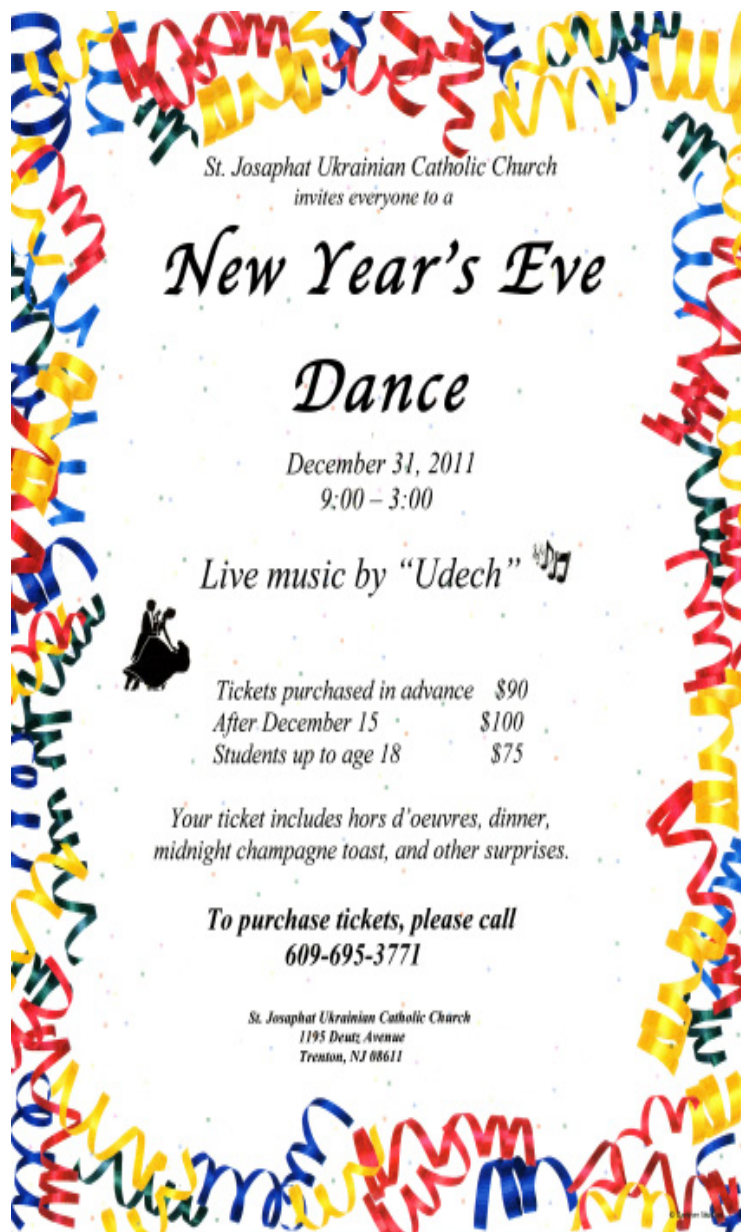 St. Josaphat Ukrainian Catholic Church
invites everyone to a
New Year's Eve
Dance
December 31, 2011
9:00 – 3:00
Live music by “Udech”
Tickets purchased in advance $90
After December 15 $100
Students up to age 18 $75
Your ticket includes hors d'oeuvres, dinner,
midnight champagne toast, and other surprises.
To purchase tickets, please call
609-695-3771
St. Josaphat Ukrainian Catholic Church
1195 Deutz Avenue
Trenton, NJ 08611